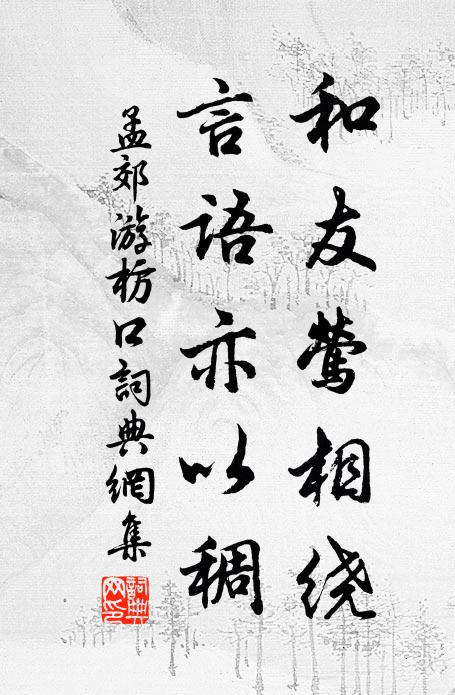 和友莺相绕
言语亦以稠
孟郊游枋口詞典網集